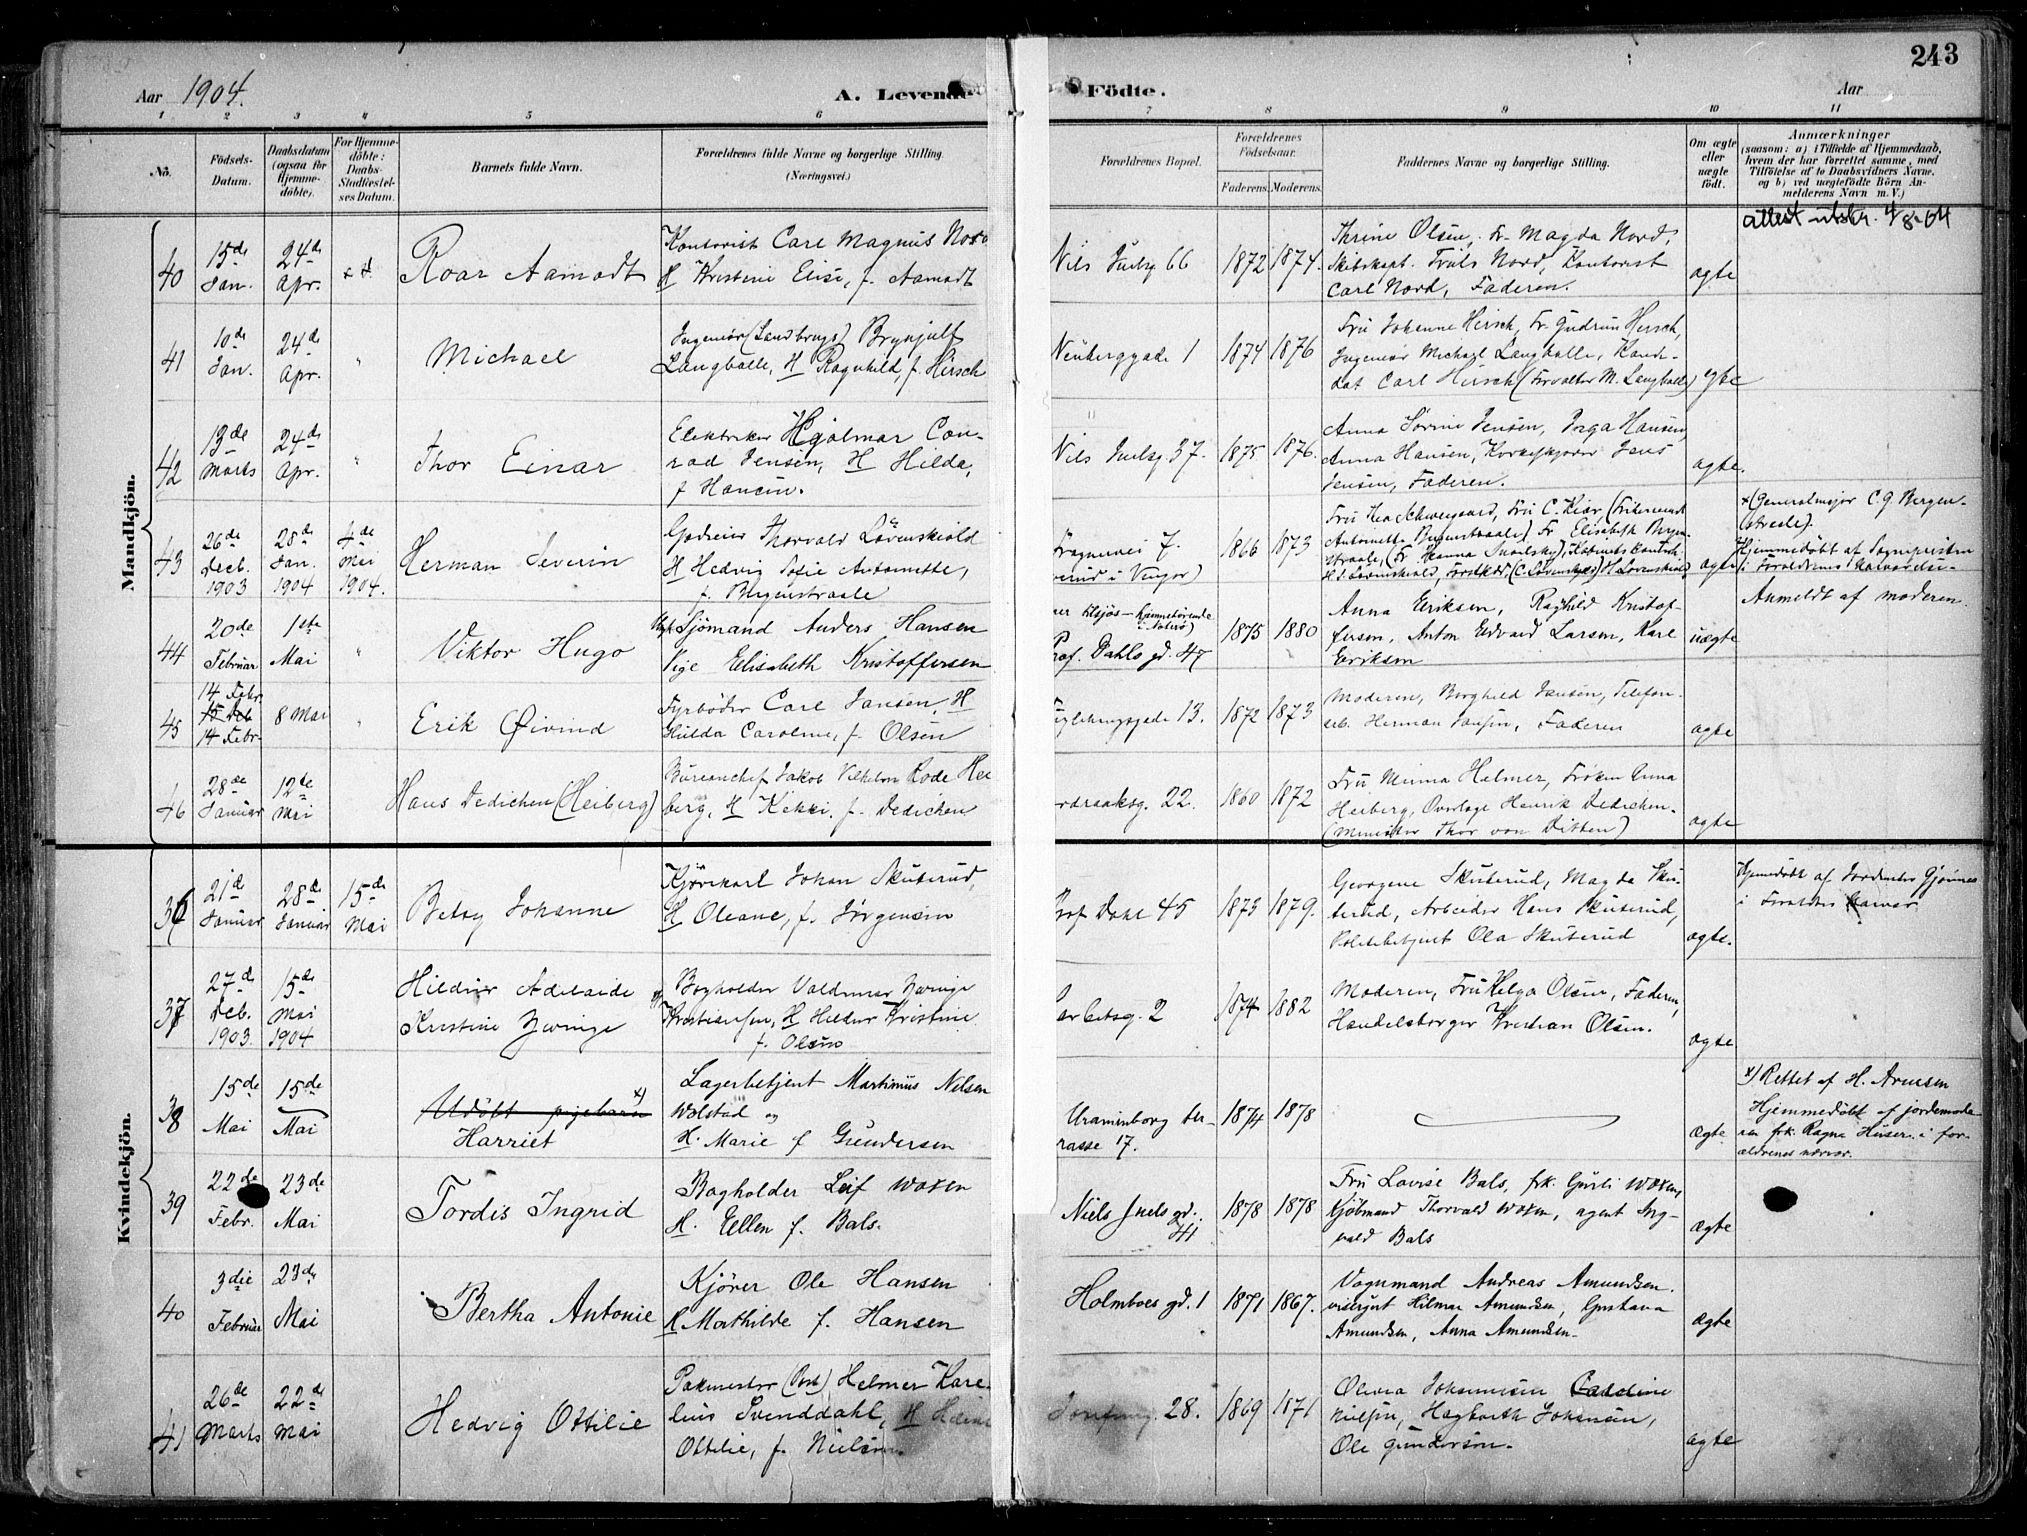 243
Aar 1904.
A. Levende
Födte.
Aar
1 2 3 4 5 6 7 8 9 10 11
No.
Födsels-
Datum.
Daabsdatum
(ogsaa for
Hjemme-
döbte).
For Hjemme-
döbte:
Daabs-
Stadfæstel-
ses Datum.
Barnets fulde Navn.
Forældrenes fulde Navne og borgerlige Stilling.
(Næringsvei.)
Forældrenes Bopæl.
Forældrenes
Födselsaar.
Faderens. Moderens.
Faddernes Navne og borgerlige Stilling.
Om ægte
eller
uægte
födt.
Anmærkninger
(saasom: a) i Tilfælde af Hjemmedaab,
hvem der har forrettet samme, med
Tilföielse af to Daabsvidners Navne,
og b) ved uægtefödte Börn An-
melderens Navn m. V.)
Mandkjön.
40
15de
Jan.
24de
Apr.
Roar Aamodt
Kontorist Carl Magnus Nord
H Kristine Elise, f. Aamodt
Nils Juelsg 66
1872 1874.
Thrine Olsen, Fr. Magda Nord,
Skibskapt. Truls Nord, Kontorist
Carl Nord, Faderen.
ægte
attest utskr. 4/8-64
41
10de
Jan.
24de
Apr.
"
Michael
Ingeniør (Landbrugs) Brynjulf
Langballe, H Ragnhild, f. Hirsch
Neuberggade 1
1874 1876
Fru Johanne Hirsch, Fr. Gudrun Hirsch,
Ingeniør Michael Langballe, Kandi-
dat Carl Hirsch (Forvalter M. Langballe)
ægte
42
13de
Marts
24de
Apr.
"
Thor Einar
Elektriker Hjalmar Con-
rad Jensen, H Hilda,
f Hansen.
Nils Juelsg 37.
1875 1876.
Anna Sørine Jensen, Inga Hansen,
Anna Hansen, Jens
Jensen, Faderen.
ægte.
43
26de
Decb.
1903
28de
Jan.
1904
4de
Mai
1904.
Herman Severin
Godseier Thorvald Løvenskiold
H Hedvig Sofie Antoinette,
f. Bergenstraale
7.
1866 1873
Fru Schweigaard, Fru C. Kiær
ægte
x (Generalmajor C. G. Bergen-
straale).
Hjemmedøbt af Sognepresten
i Forældrenes
44
20de
Februar
1ste
Mai
"
Viktor Hugo
Sjømand Anders Hansen
Pige Elisabeth Kristoffersen
Prof. Dahls gd. 47
1875 1880
Anna Eriksen, Raghild Kristof-
fersen, Anton Edvard Larsen, Karl
Eriksen
uægte
Anmeldt af moderen.
45
14 Febr.
14 Febr.
8 Mai
"
Erik Øivind
Fyrbøder Carl Jansen, H
Hulda Caroline, f. Olsen
13.
1872 1873
Moderen, Borghild Jansen, Telefon-
arb. Herman Jansen, Faderen
ægte
46
28de
Januar
12te
Mai
Hans Dedichen (Heiberg)
Bureauchef Jakob Vilhelm Rode Hei-
berg, H Kikki, f. Dedichen
22.
1860 1872
Fru Minna Helmer, Frøken Anna
Heiberg, Overlæge Henrik Dedichen.
(Minister Thor von Ditten)
ægte
Kvindekjön.
36
21de
Januar
28de
Januar
15de
Mai
Betsy Johanne
Kjørekarl Johan Skuterud,
H Oleane, f. Jørgensen
Prof Dahl 45
1873 1879.
Georgene Skuterud, Magda Sku-
terud, Arbeider Hans Skuterud,
Politibetjent Ola Skuterud
ægte.
Hjemmedøbt af Jordemoder Gjønnes
i Forældres nærvær
37
27de
Decb.
1903.
15de
Mai
1904
Hildur Adelaide
Kristine Zwinge
Bogholder Valdemar Zwinge
Kristiansen, H Hildur Kristine
f. Olsen
2
1874 1882
Moderen, Fru Helga Olsen, Faderen,
Handelsborger Kristian Olsen.
ægte
38
15de
Mai
15de
Mai
Udøbt pigebarn x)
Harriet
Lagerbetjent Martinius Nelsen
Wolstad og
H. Marie f Gundersen
Uranienborg ter-
rasse 17.
1874 1878
ægte
x) Rettet af H. Arnesen
Hjemmedøbt af jordemode-
ren frk. Ragna Huser i for-
ældrenes nærvær.
39
22de
Febr.
23de
Mai
Tordis Ingrid
Bogholder Leif Woxen
H. Ellen f. Bals.
Niels Juels gd.
41
1878 1878
Fru Lovise Bals, frk. Gurli Woxen,
Kjøbmand Thorvald Woxen, agent Ing-
vald Bals
ægte
40
3die
Februar
23de
Mai
Bertha Antonie
Kjører Ole Hansen
H Mathilde f. Hansen
Holmboes gd. 1
1871 1867.
Vognmand Andreas Amundsen.
visergut Hilmar Amundsen, Gustava
Amundsen, Anna Amundsen.
ægte
41
26de
Marts
22de
Mai
Hedvig Ottilie
Pakmester (Post) Helmer Kare-
lius Svenddahl, H Helene
Ottilie, f. Nielsen.
28.
1869 1871
Olivia Johannesen Caroline
Nielsen, Hagbarth Johansen,
Ole Gundersen.
ægte